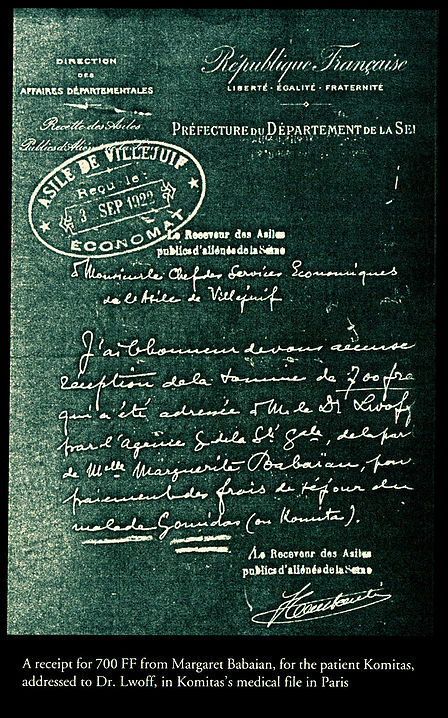 DIRECTION
DES
AFFAIRES DÉPARTEMENTALES
République Française
LIBERTÉ - ÉGALITÉ - FRATERNITÉ
Recette des Asiles
Publics d'Alien
PRÉFECTURE DU DÉPARTEMENT DE LA SEI
ASILE DE VILLEJUIF
Reçu le:
3 SEP 1922
ÉCONOMAT
Le Receveur des Asiles
publics d'aliénés de la Seine
à Monsieur le Chef des Services Économiques
de l'Asile de Villejuif
J'ai l'honneur de vous accuse
réception de la somme de 700 frs
qui a été adressée à M. le Dr Lwoff
par l'agence G de la Sté Gale, de la par
de Melle Marguerite Babaïan, pour
paiement des frais de séjour du
malade Gomidas (ou Komitas).
Le Receveur des Asiles
publics d'aliénés de la Seine
A receipt for 700 FF from Margaret Babaian, for the patient Komitas,
addressed to Dr. Lwoff, in Komitas's medical file in Paris